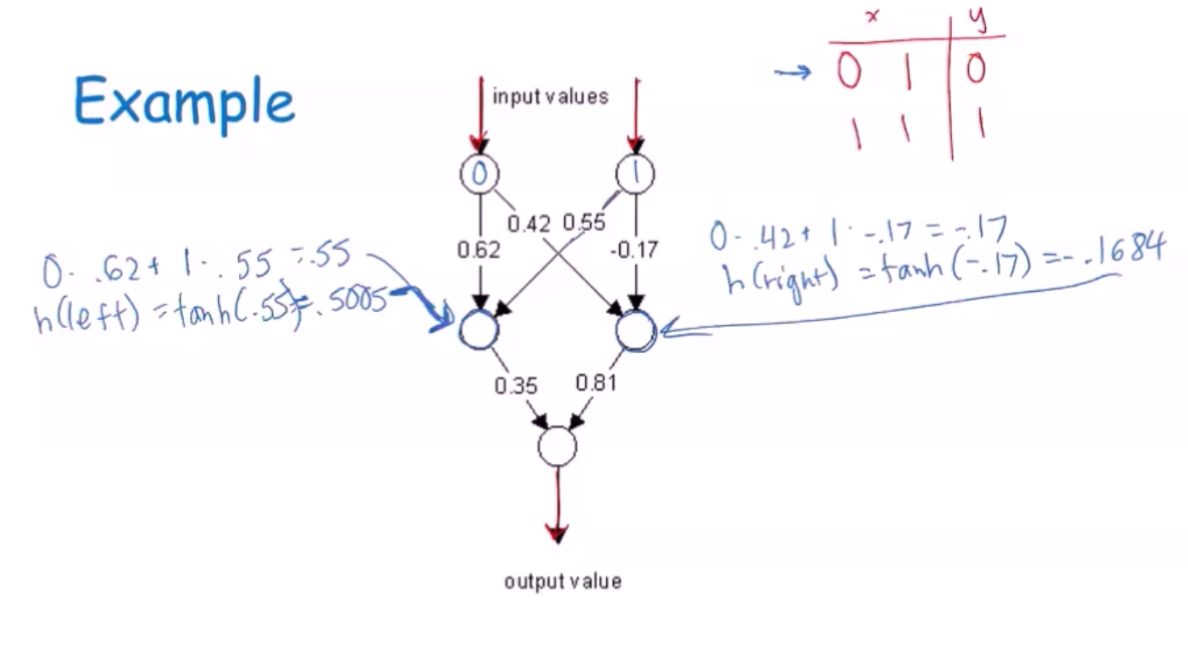 x y
→ 0 1 0
1 1 1
Example
input values
0 1
0.42 0.55
0.62 -0.17
0 · .62 + 1 · .55 = .55
h(left) = tanh(.55) = .5005
0 · .42 + 1 · -.17 = -.17
h(right) = tanh(-.17) = -.1684
0.35 0.81
output value